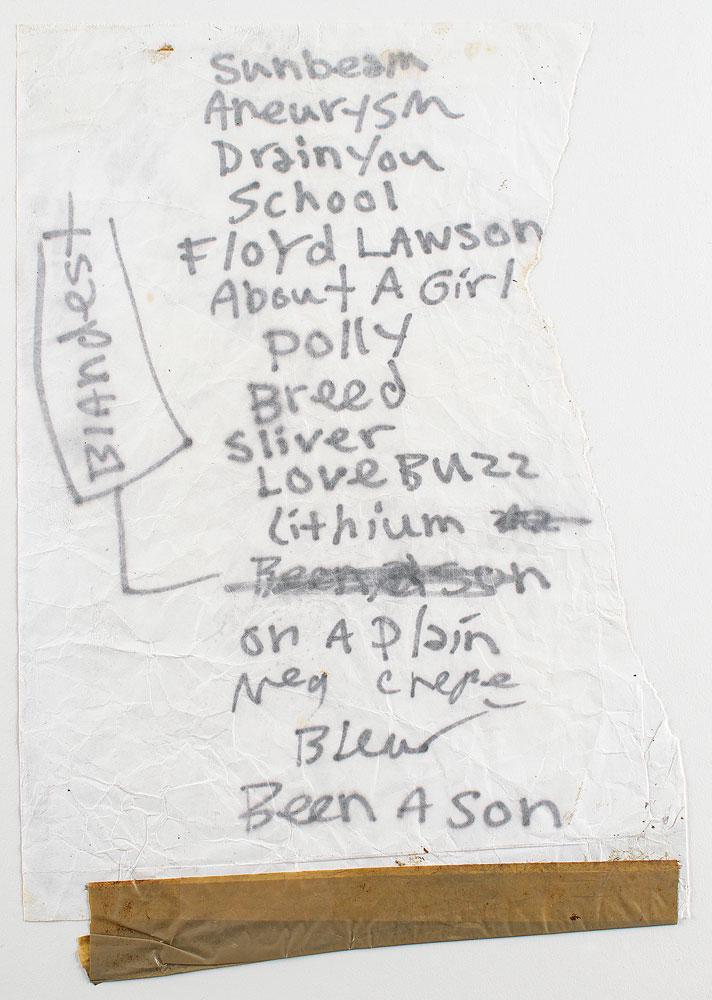 Sunbeam
Aneurysm
Drain You
School
Floyd LAWSON
About A Girl
Polly
Breed
Sliver
Love BUZZ
Lithium
BlAndest
Been A Son
on A Plain
Neg crepe
Blew
Been A Son